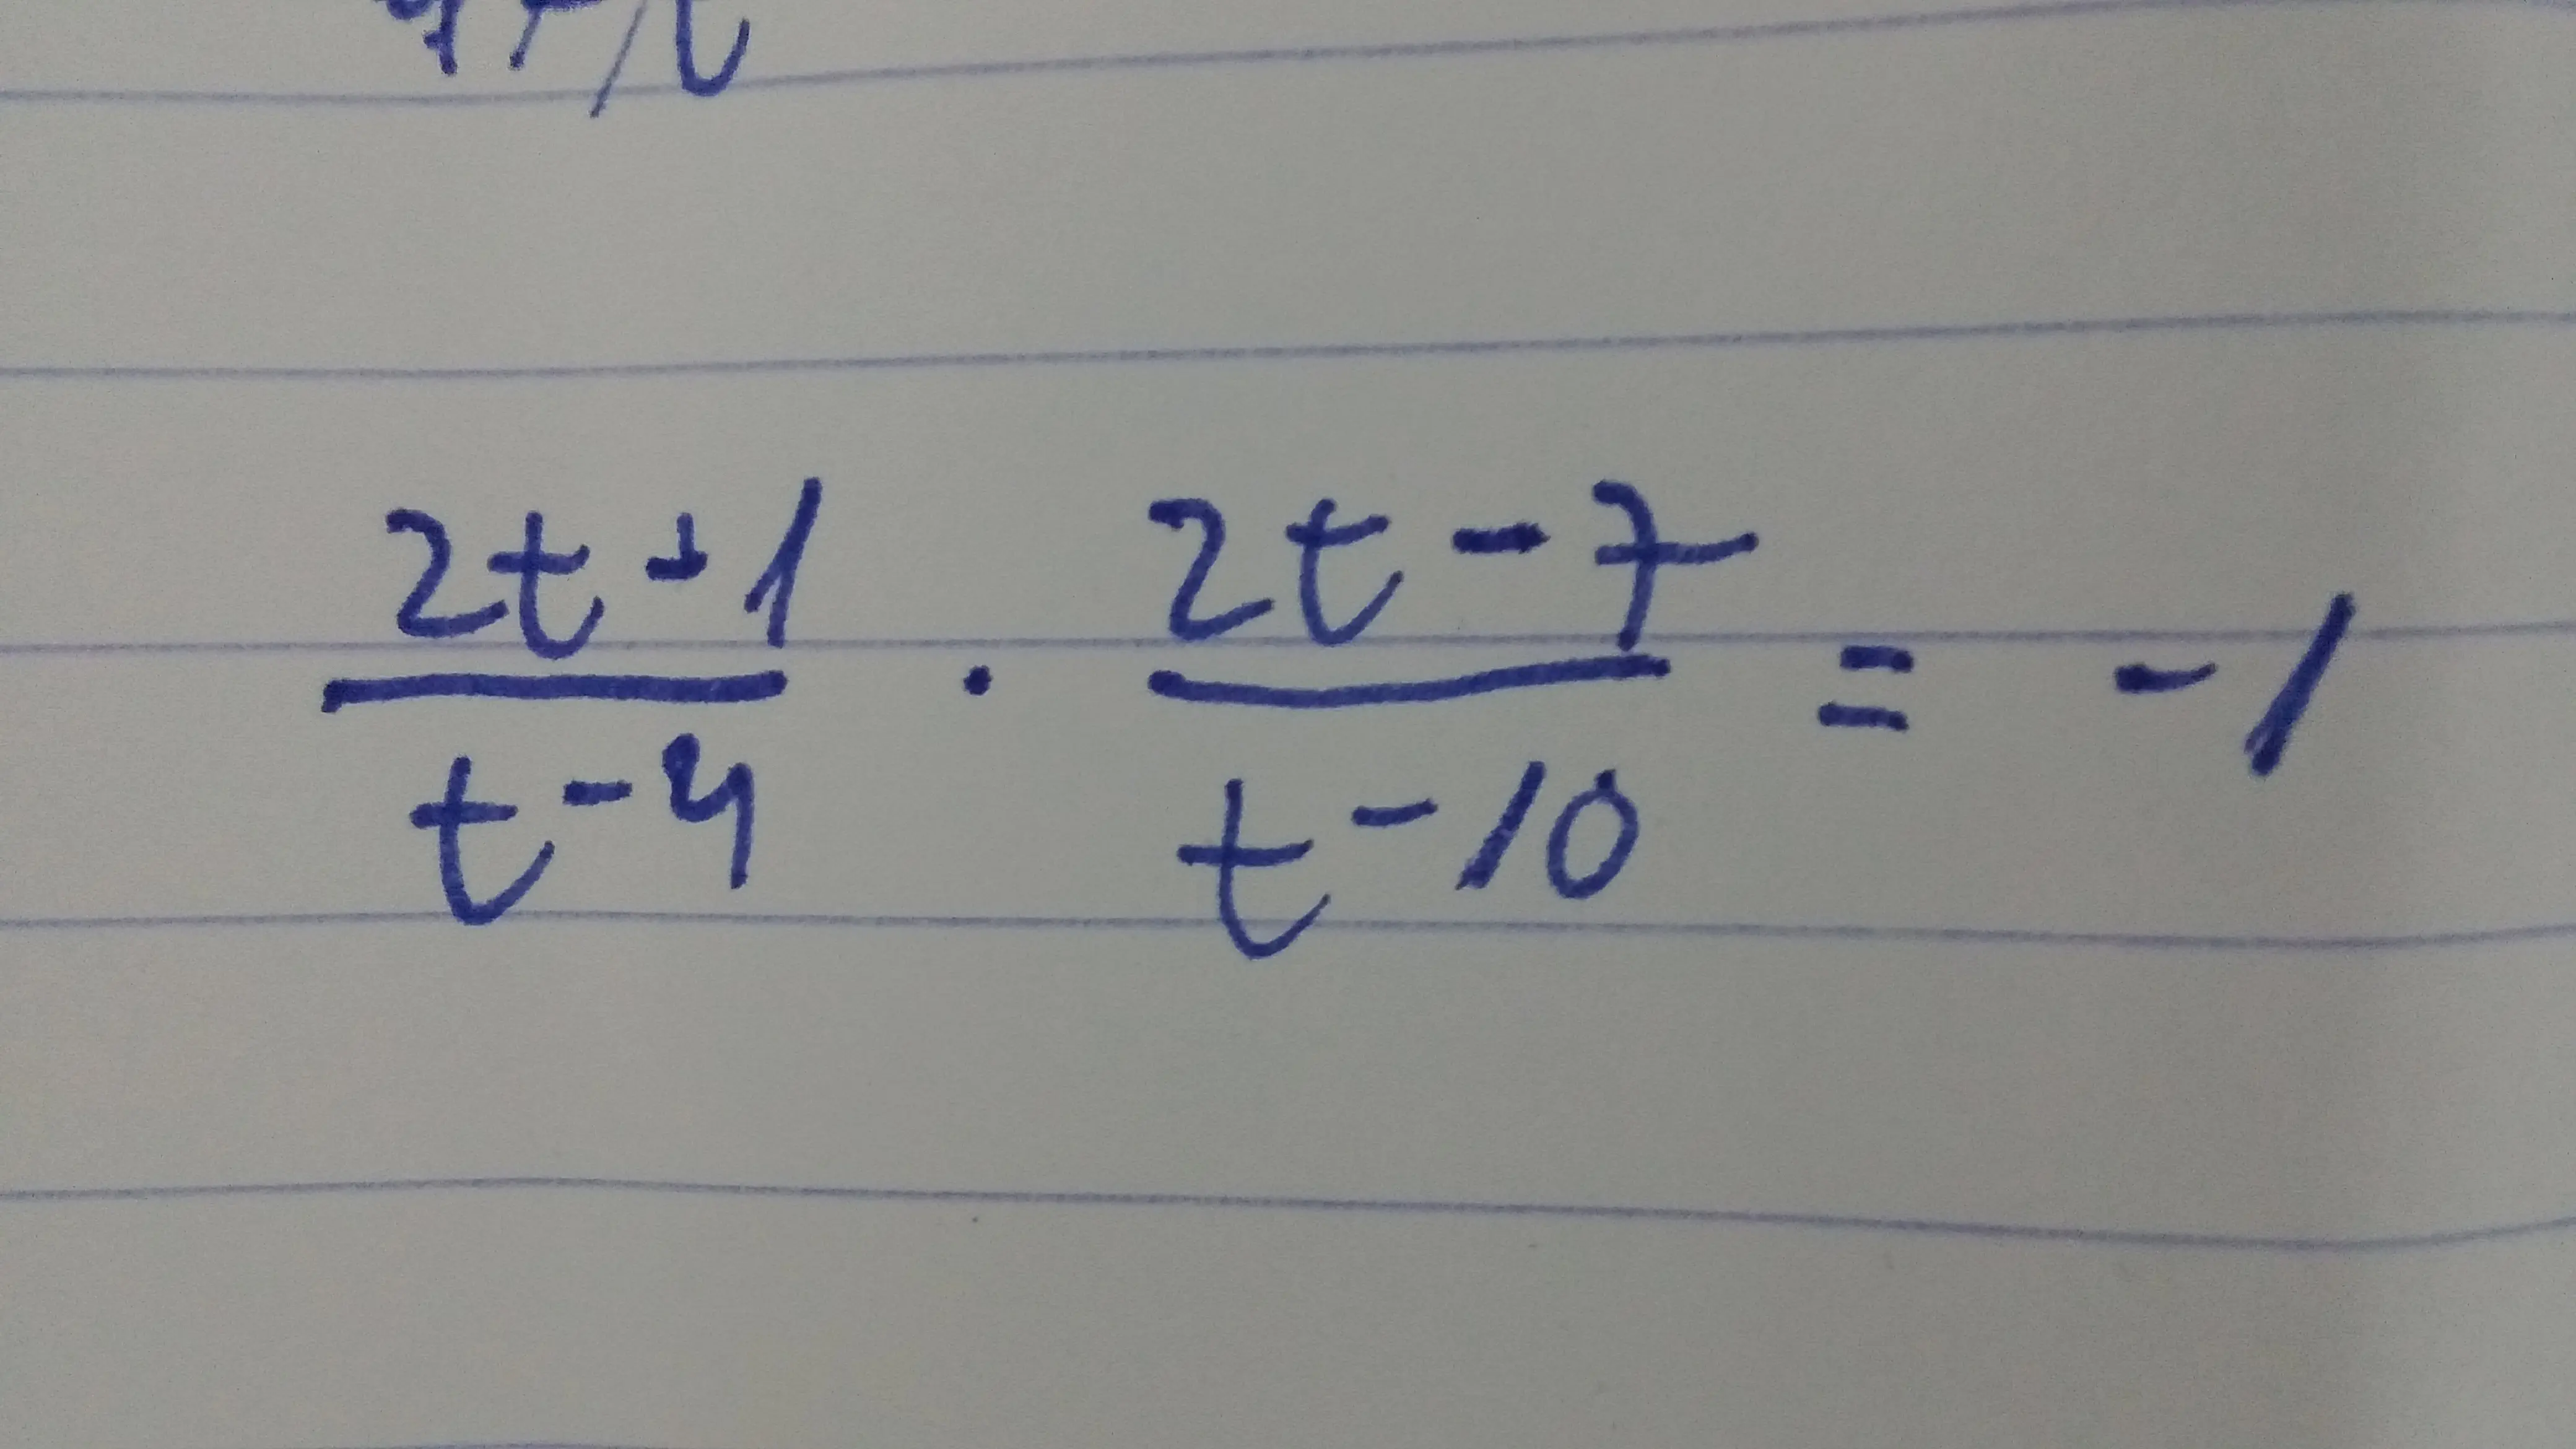 2t+1/t-4 · 2t-7/t-10 = -1